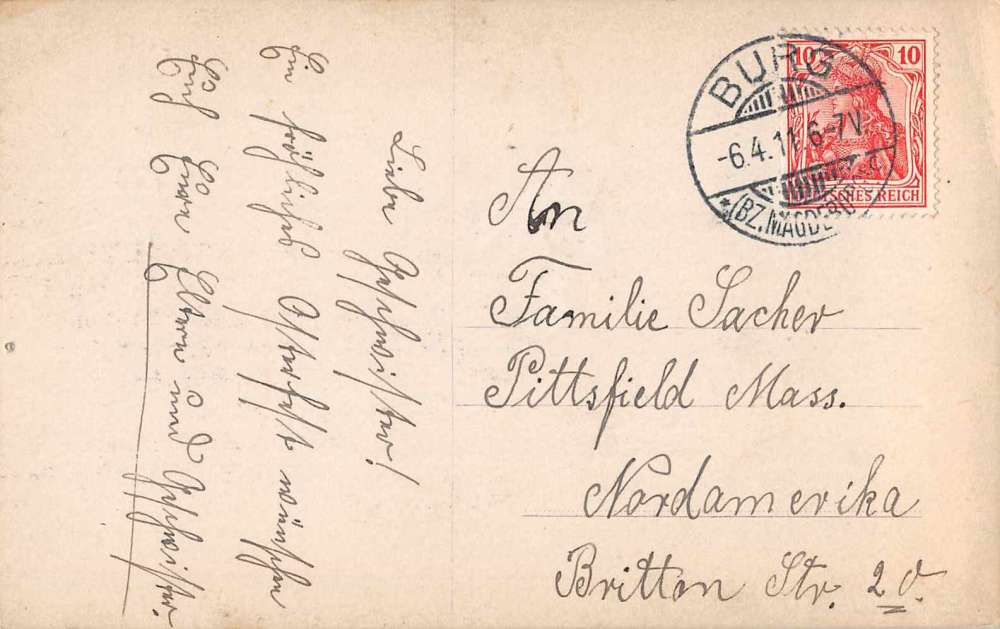 Liebe Geschwister!
Ein fröhliches Osterfest wünschen
Euch Eure Eltern und Geschwister.
10 10
DEUTSCHES REICH
BURG
-6.4.11.6-7V.
*(BZ. MAGDEBURG)
An
Familie Sacher
Pittsfield Mass.
Nordamerika
Britton Str. 20.